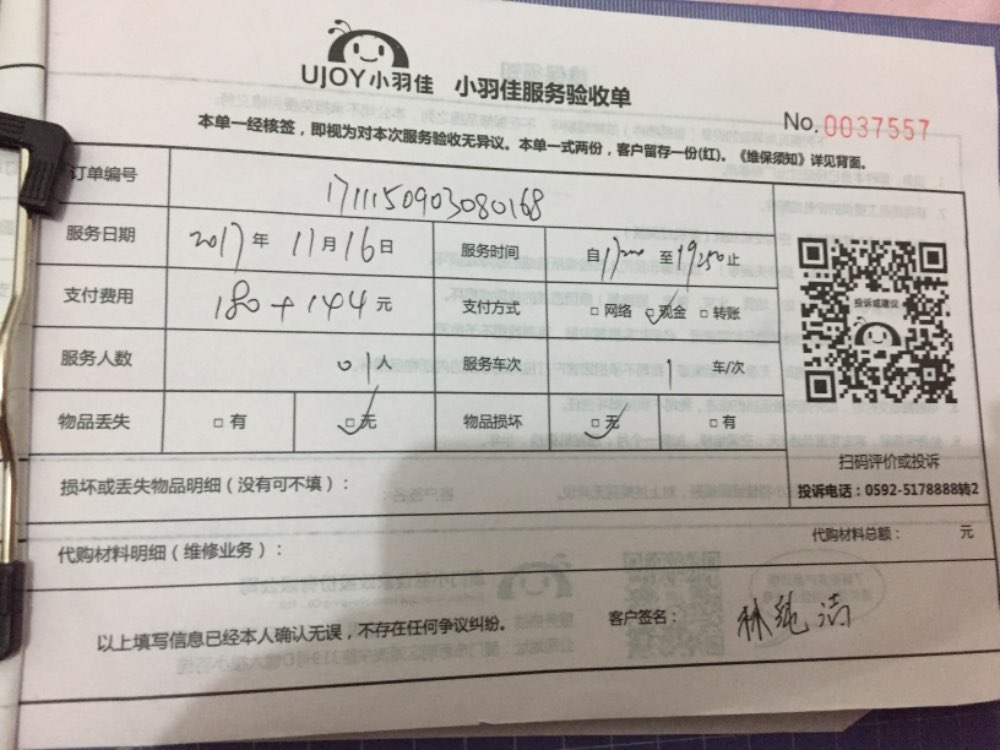 UJOY小羽佳 小羽佳服务验收单
No.0037557
本单一经核签，即视为对本次服务验收无异议。本单一式两份，客户留存一份(红)。《维保须知》详见背面。
订单编号 1711150903080168
服务日期 2017年 11月16日 服务时间 自 至 止
支付费用 180+144元 支付方式 □网络 □现金 □转账
投诉或建议
服务人数 01人 服务车次 1 车/次
物品丢失 □有 □无 物品损坏 □无 □有
扫码评价或投诉
损坏或丢失物品明细（没有可不填）：
投诉电话：0592-5178888转2
代购材料明细（维修业务）：
代购材料总额： 元
以上填写信息已经本人确认无误，不存在任何争议纠纷。
客户签名： 林纯洁